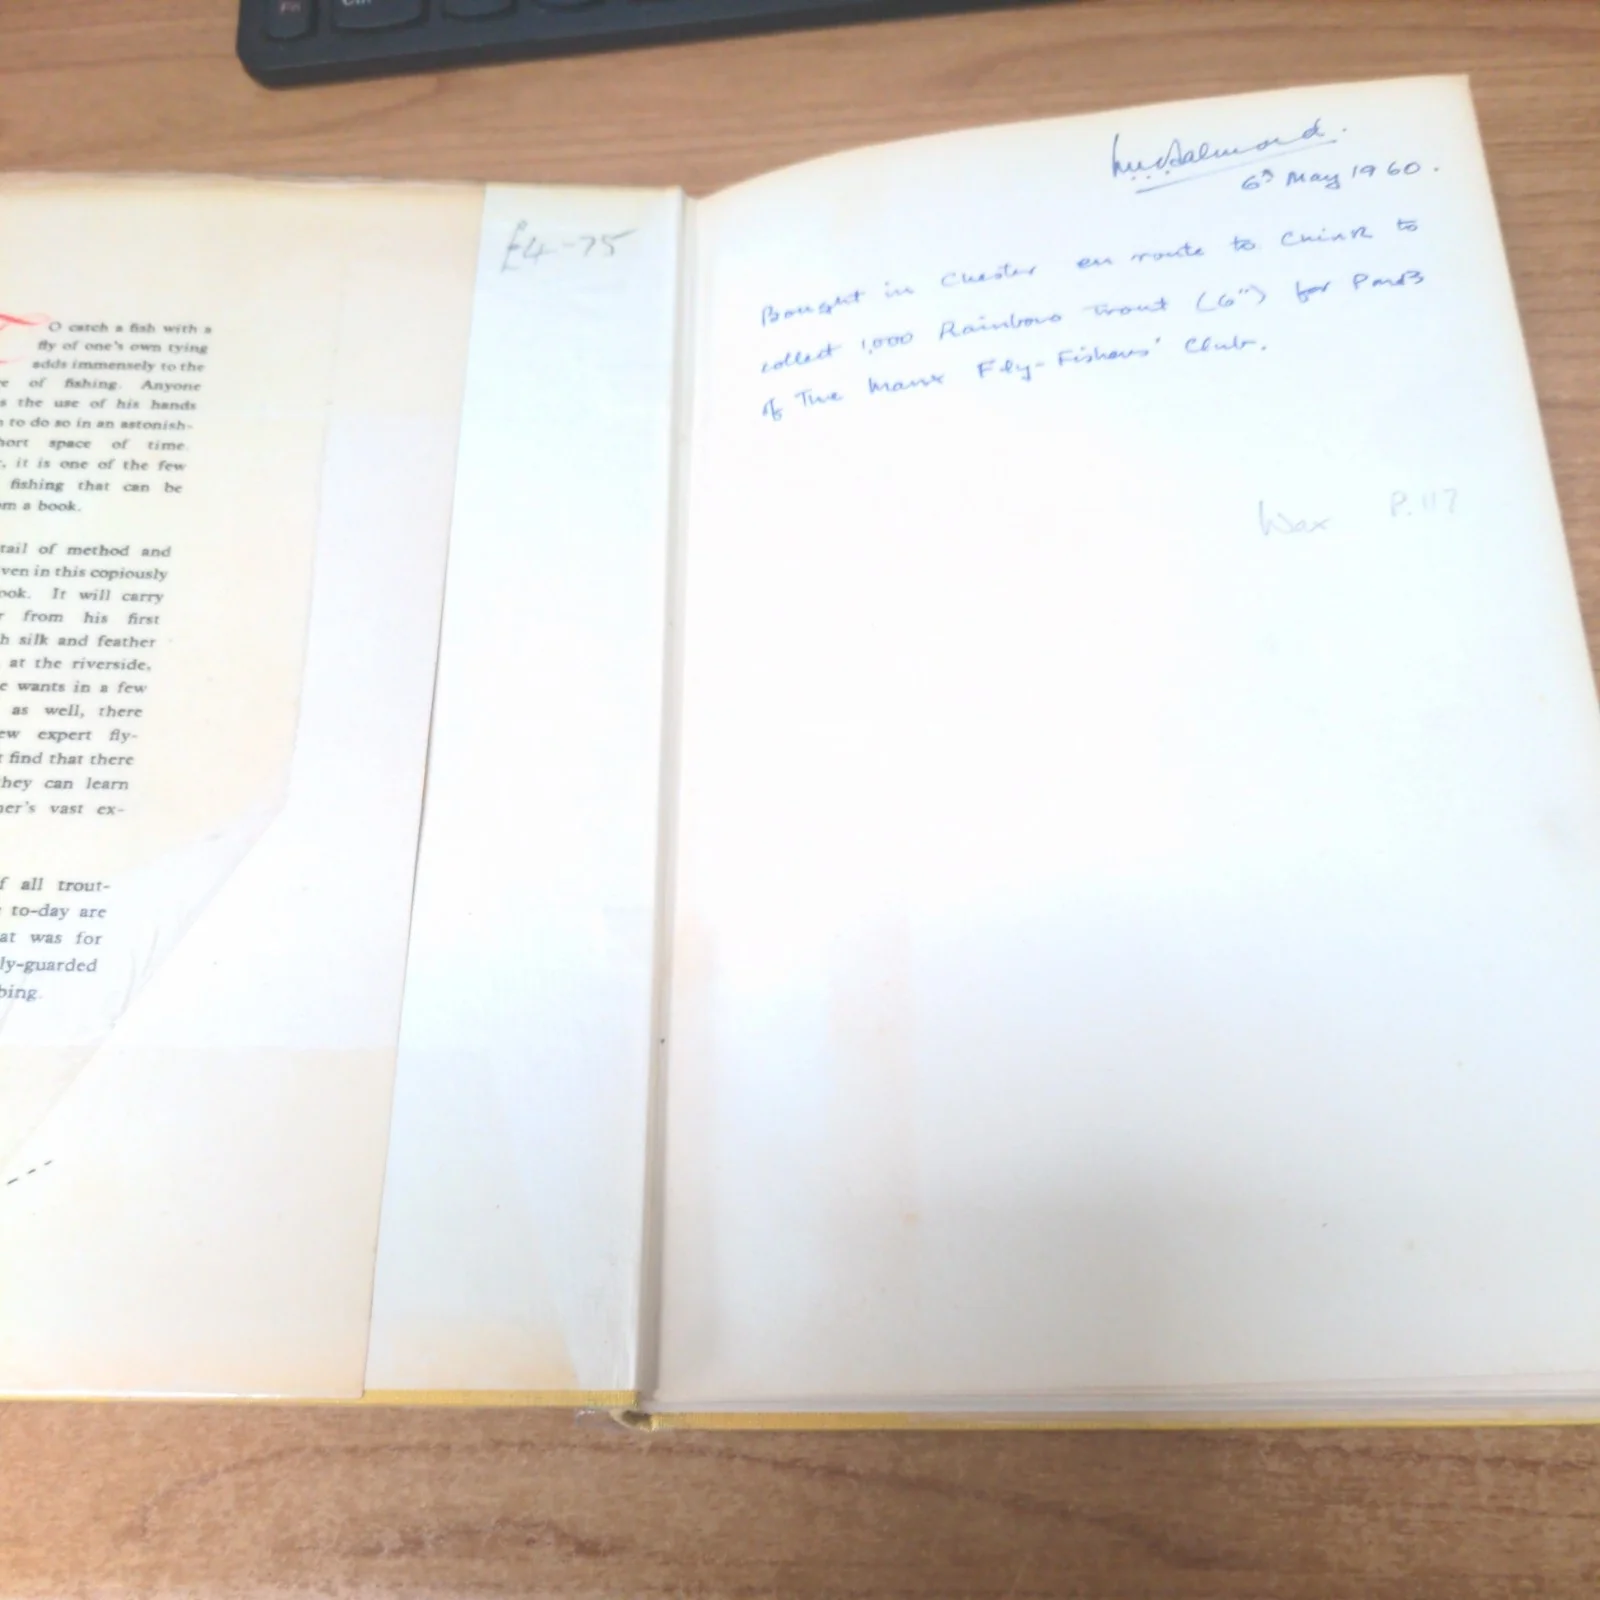 Fn
Ctrl
TO catch a fish with a
fly of one's own tying
adds immensely to the
e of fishing. Anyone
s the use of his hands
n to do so in an astonish-
hort space of time.
, it is one of the few
fishing that can be
om a book.
tail of method and
ven in this copiously
ook. It will carry
r from his first
h silk and feather
at the riverside,
e wants in a few
as well, there
ew expert fly-
t find that there
they can learn
ner's vast ex-
f all trout-
to-day are
at was for
ly-guarded
bing.
£4-75
Salmond.
6th May 1960.
Bought in Chester en route to Chirk to
collect 1,000 Rainbow Trout (6") for
of The Manx Fly-Fishers' Club.
Wax P.117